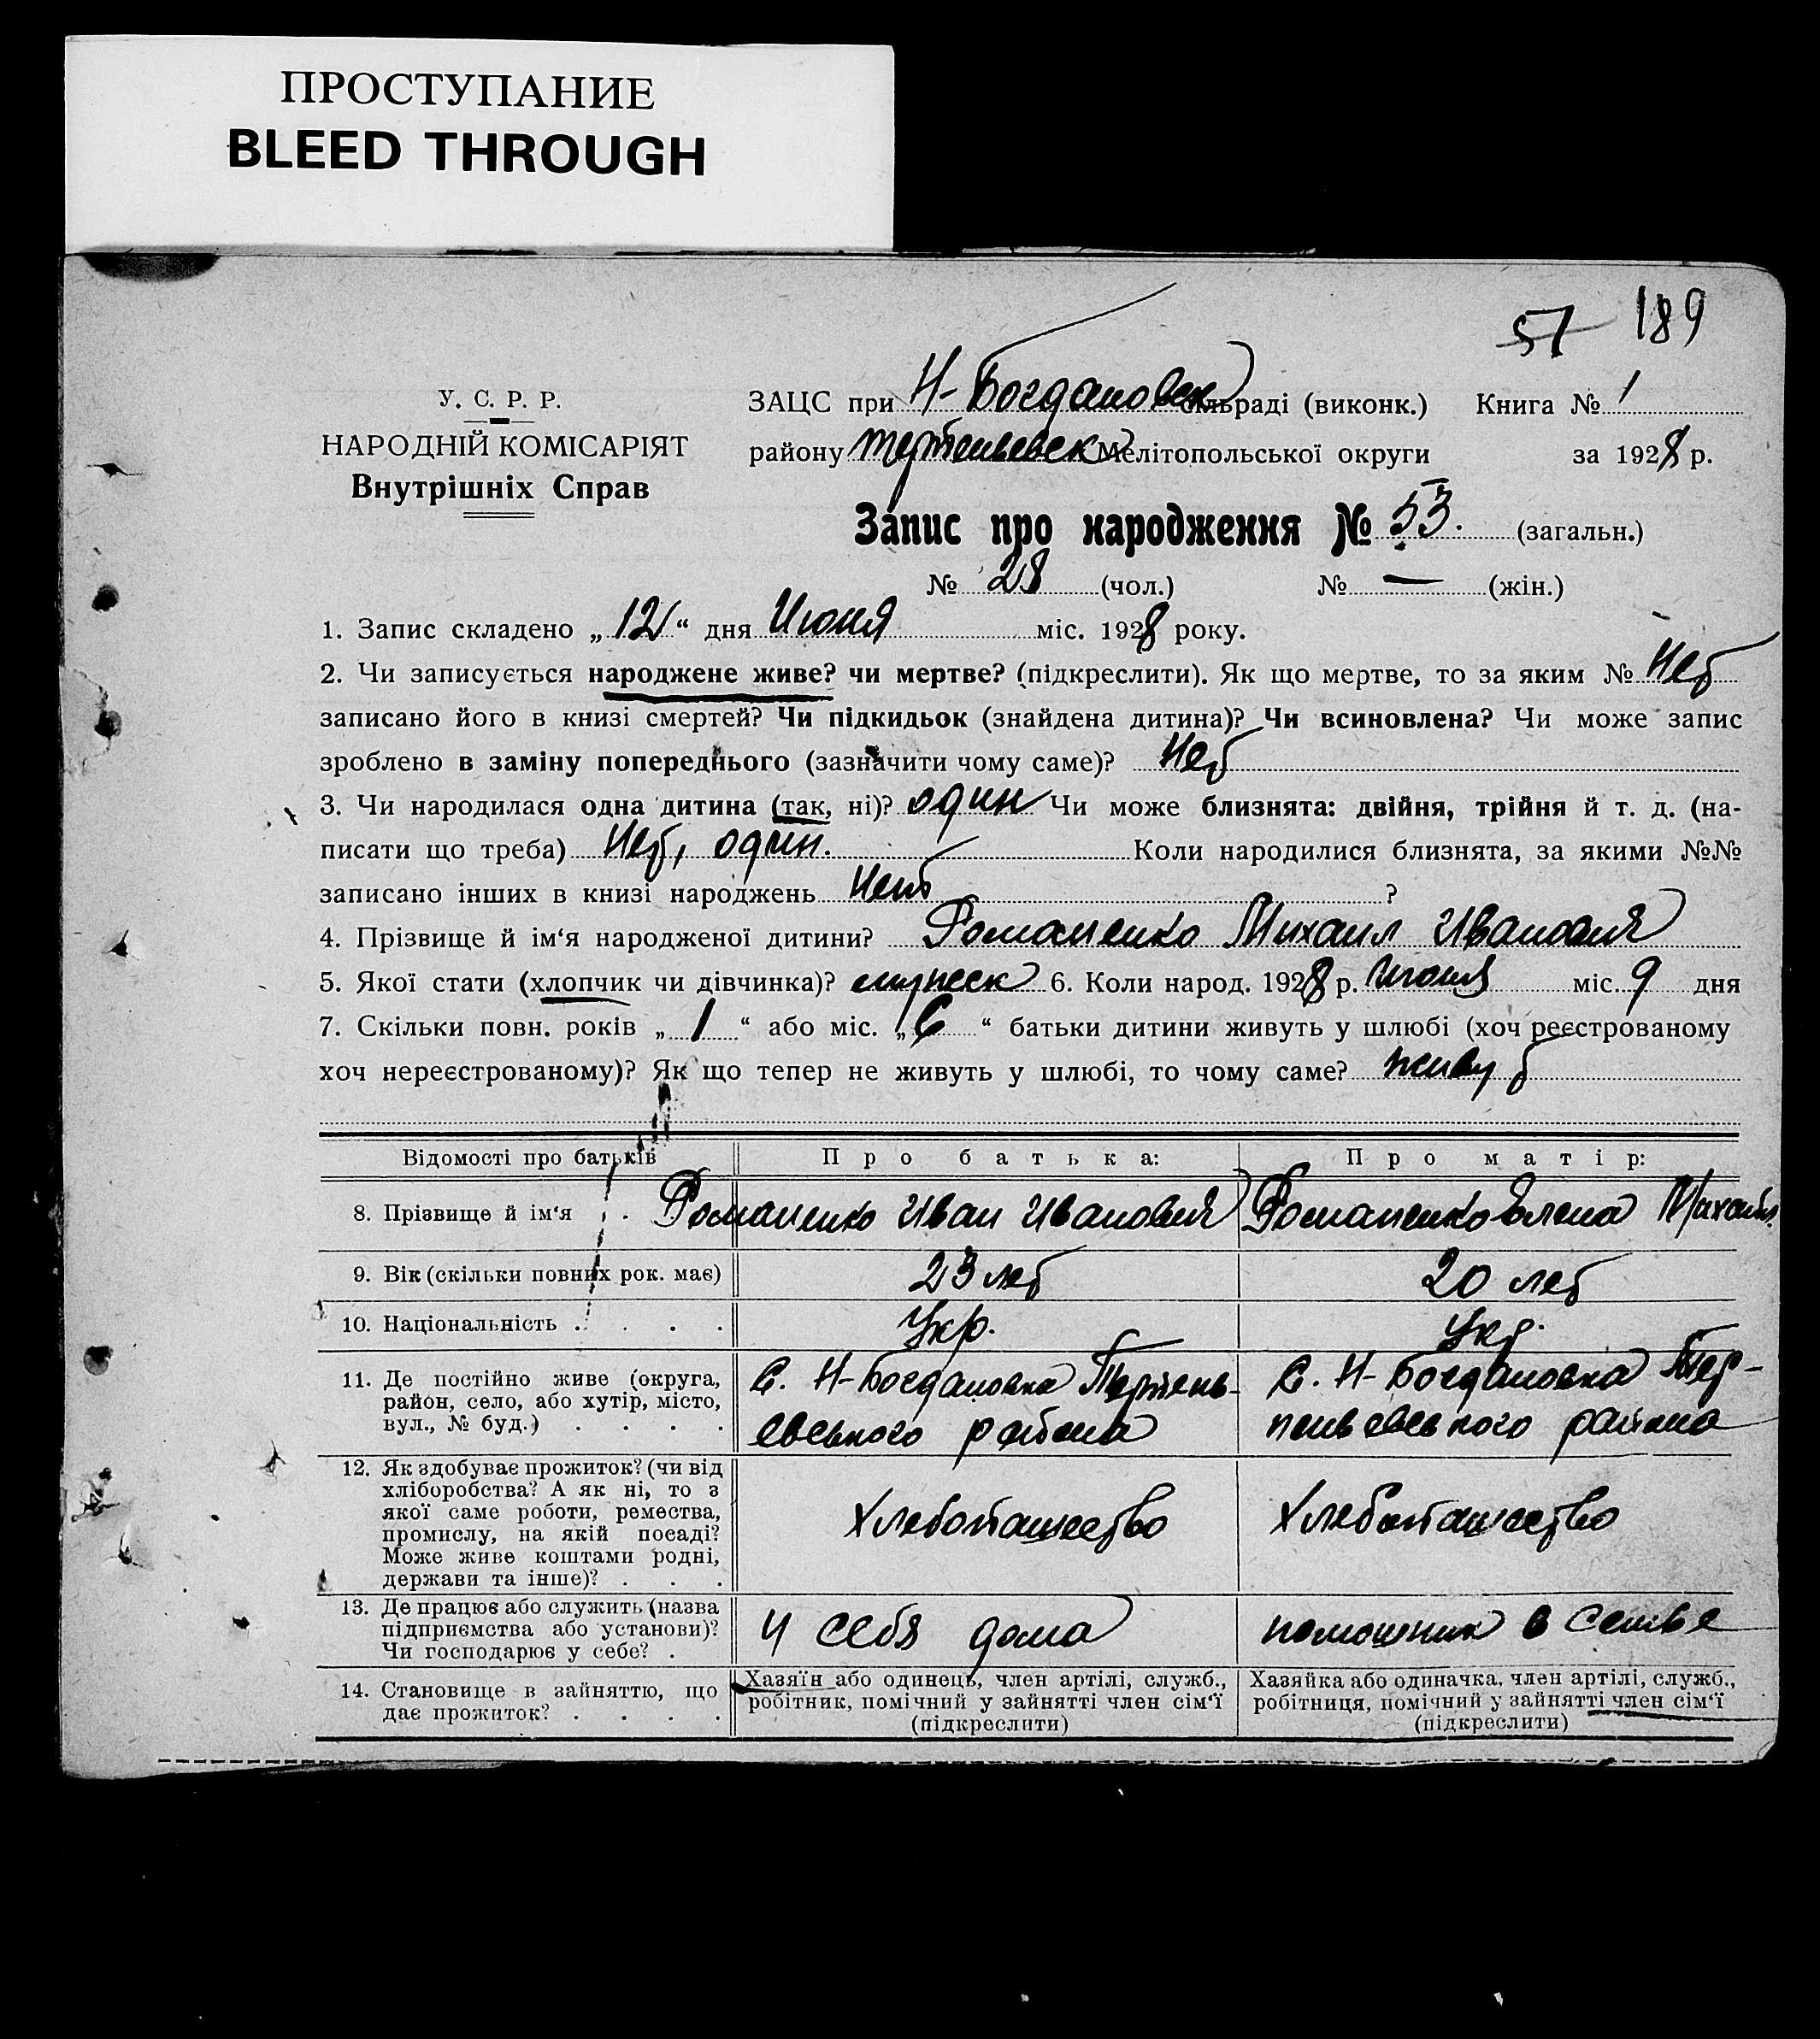 ПРОСТУПАНИЕ
BLEED THROUGH
57 189
У. С. Р. Р.
НАРОДНІЙ КОМІСАРІЯТ
Внутрішніх Справ
ЗАЦС при Н-Богдановск сільраді (виконк.) Книга № 1
району Терпеньевск Мелітопольської округи за 1928 р.
Запис про народження № 53. (загальн.)
№ 28 (чол.) № — (жін.)
1. Запис складено „12“ дня Июня міс. 1928 року.
2. Чи записується народжене живе? чи мертве? (підкреслити). Як що мертве, то за яким № Нет
записано його в книзі смертей? Чи підкидьок (знайдена дитина)? Чи всиновлена? Чи може запис
зроблено в заміну попереднього (зазначити чому саме)? Нет
3. Чи народилася одна дитина (так, ні)? один Чи може близнята: двійня, трійня й т. д. (на-
писати що треба) Нет, один. Коли народилися близнята, за якими №№
записано інших в книзі народжень Нет ?
4. Прізвище й ім‘я народженої дитини? Романенко Михаил Иванович
5. Якої стати (хлопчик чи дівчинка)? мужеск 6. Коли народ. 1928 р. Июня міс. 9 дня
7. Скільки повн. років „1“ або міс. „6“ батьки дитини живуть у шлюбі (хоч реєстрованому
хоч нереєстрованому)? Як що тепер не живуть у шлюбі, то чому саме? живут
Відомості про батьків Про батька: Про матір:
8. Прізвище й ім‘я . . Романенко Иван Иванович Романенко Елена Михайл.
9. Вік (скільки повних рок. має) 23 лет 20 лет
10. Національність . . . . Укр. Укр.
11. Де постійно живе (округа,
район, село, або хутір, місто,
вул., № буд.) . . . .
С. Н-Богдановка Терпень-
евського района
С. Н-Богдановка Тер-
пеньевського района
12. Як здобуває прожиток? (чи від
хліборобства? А як ні, то з
якої саме роботи, ремества,
промислу, на якій посаді?
Може живе коштами родні,
держави та інше)? . . .
Хлебопашество Хлебопашество
13. Де працює або служить (назва
підприємства або установи)?
Чи господарює у себе? .
У себя дома помошник в семье
14. Становище в зайняттю, що
дає прожиток? . . . .
Хазяїн або одинець, член артілі, служб.,
робітник, помічний у зайнятті член сім‘ї
(підкреслити)
Хазяйка або одиначка, член артілі, служб.,
робітниця, помічний у зайнятті член сім‘ї
(підкреслити)